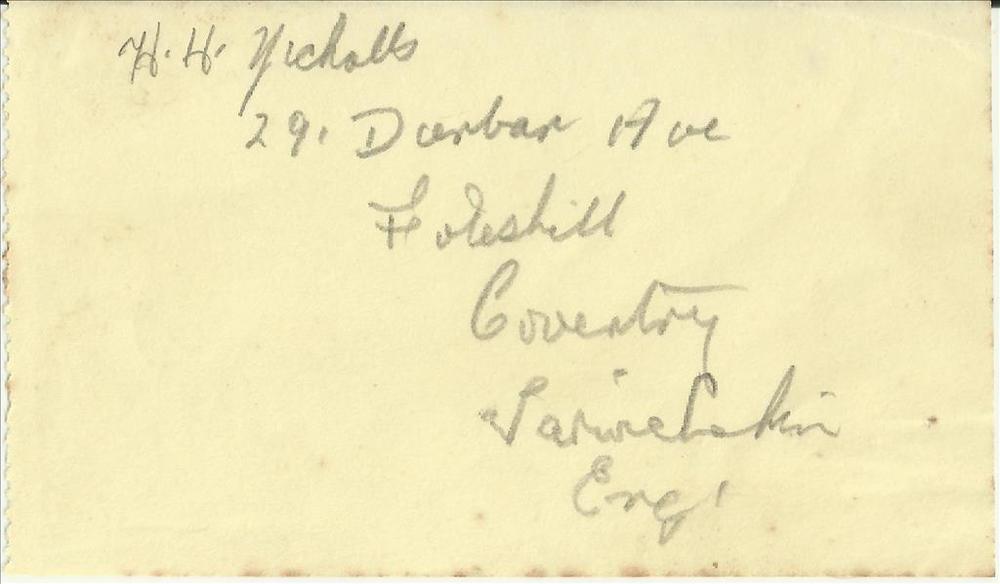 H. H. Nicholls
29. Durbar Ave
Foleshill
Coventry
Eng.